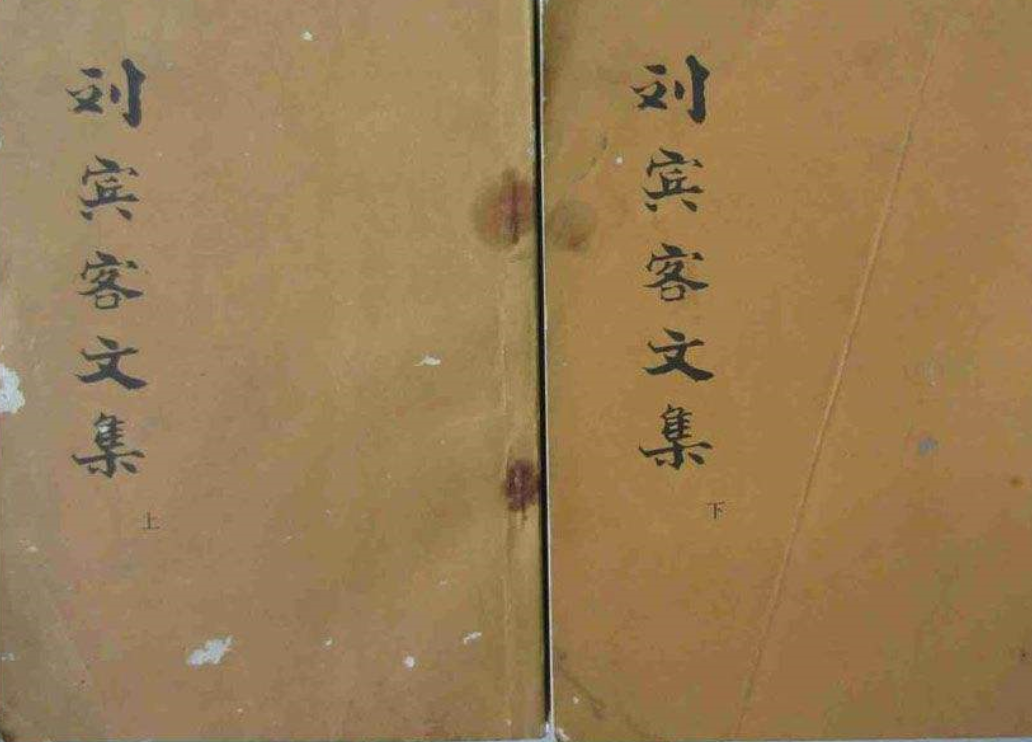 刘宾客文集
上
刘宾客文集
下